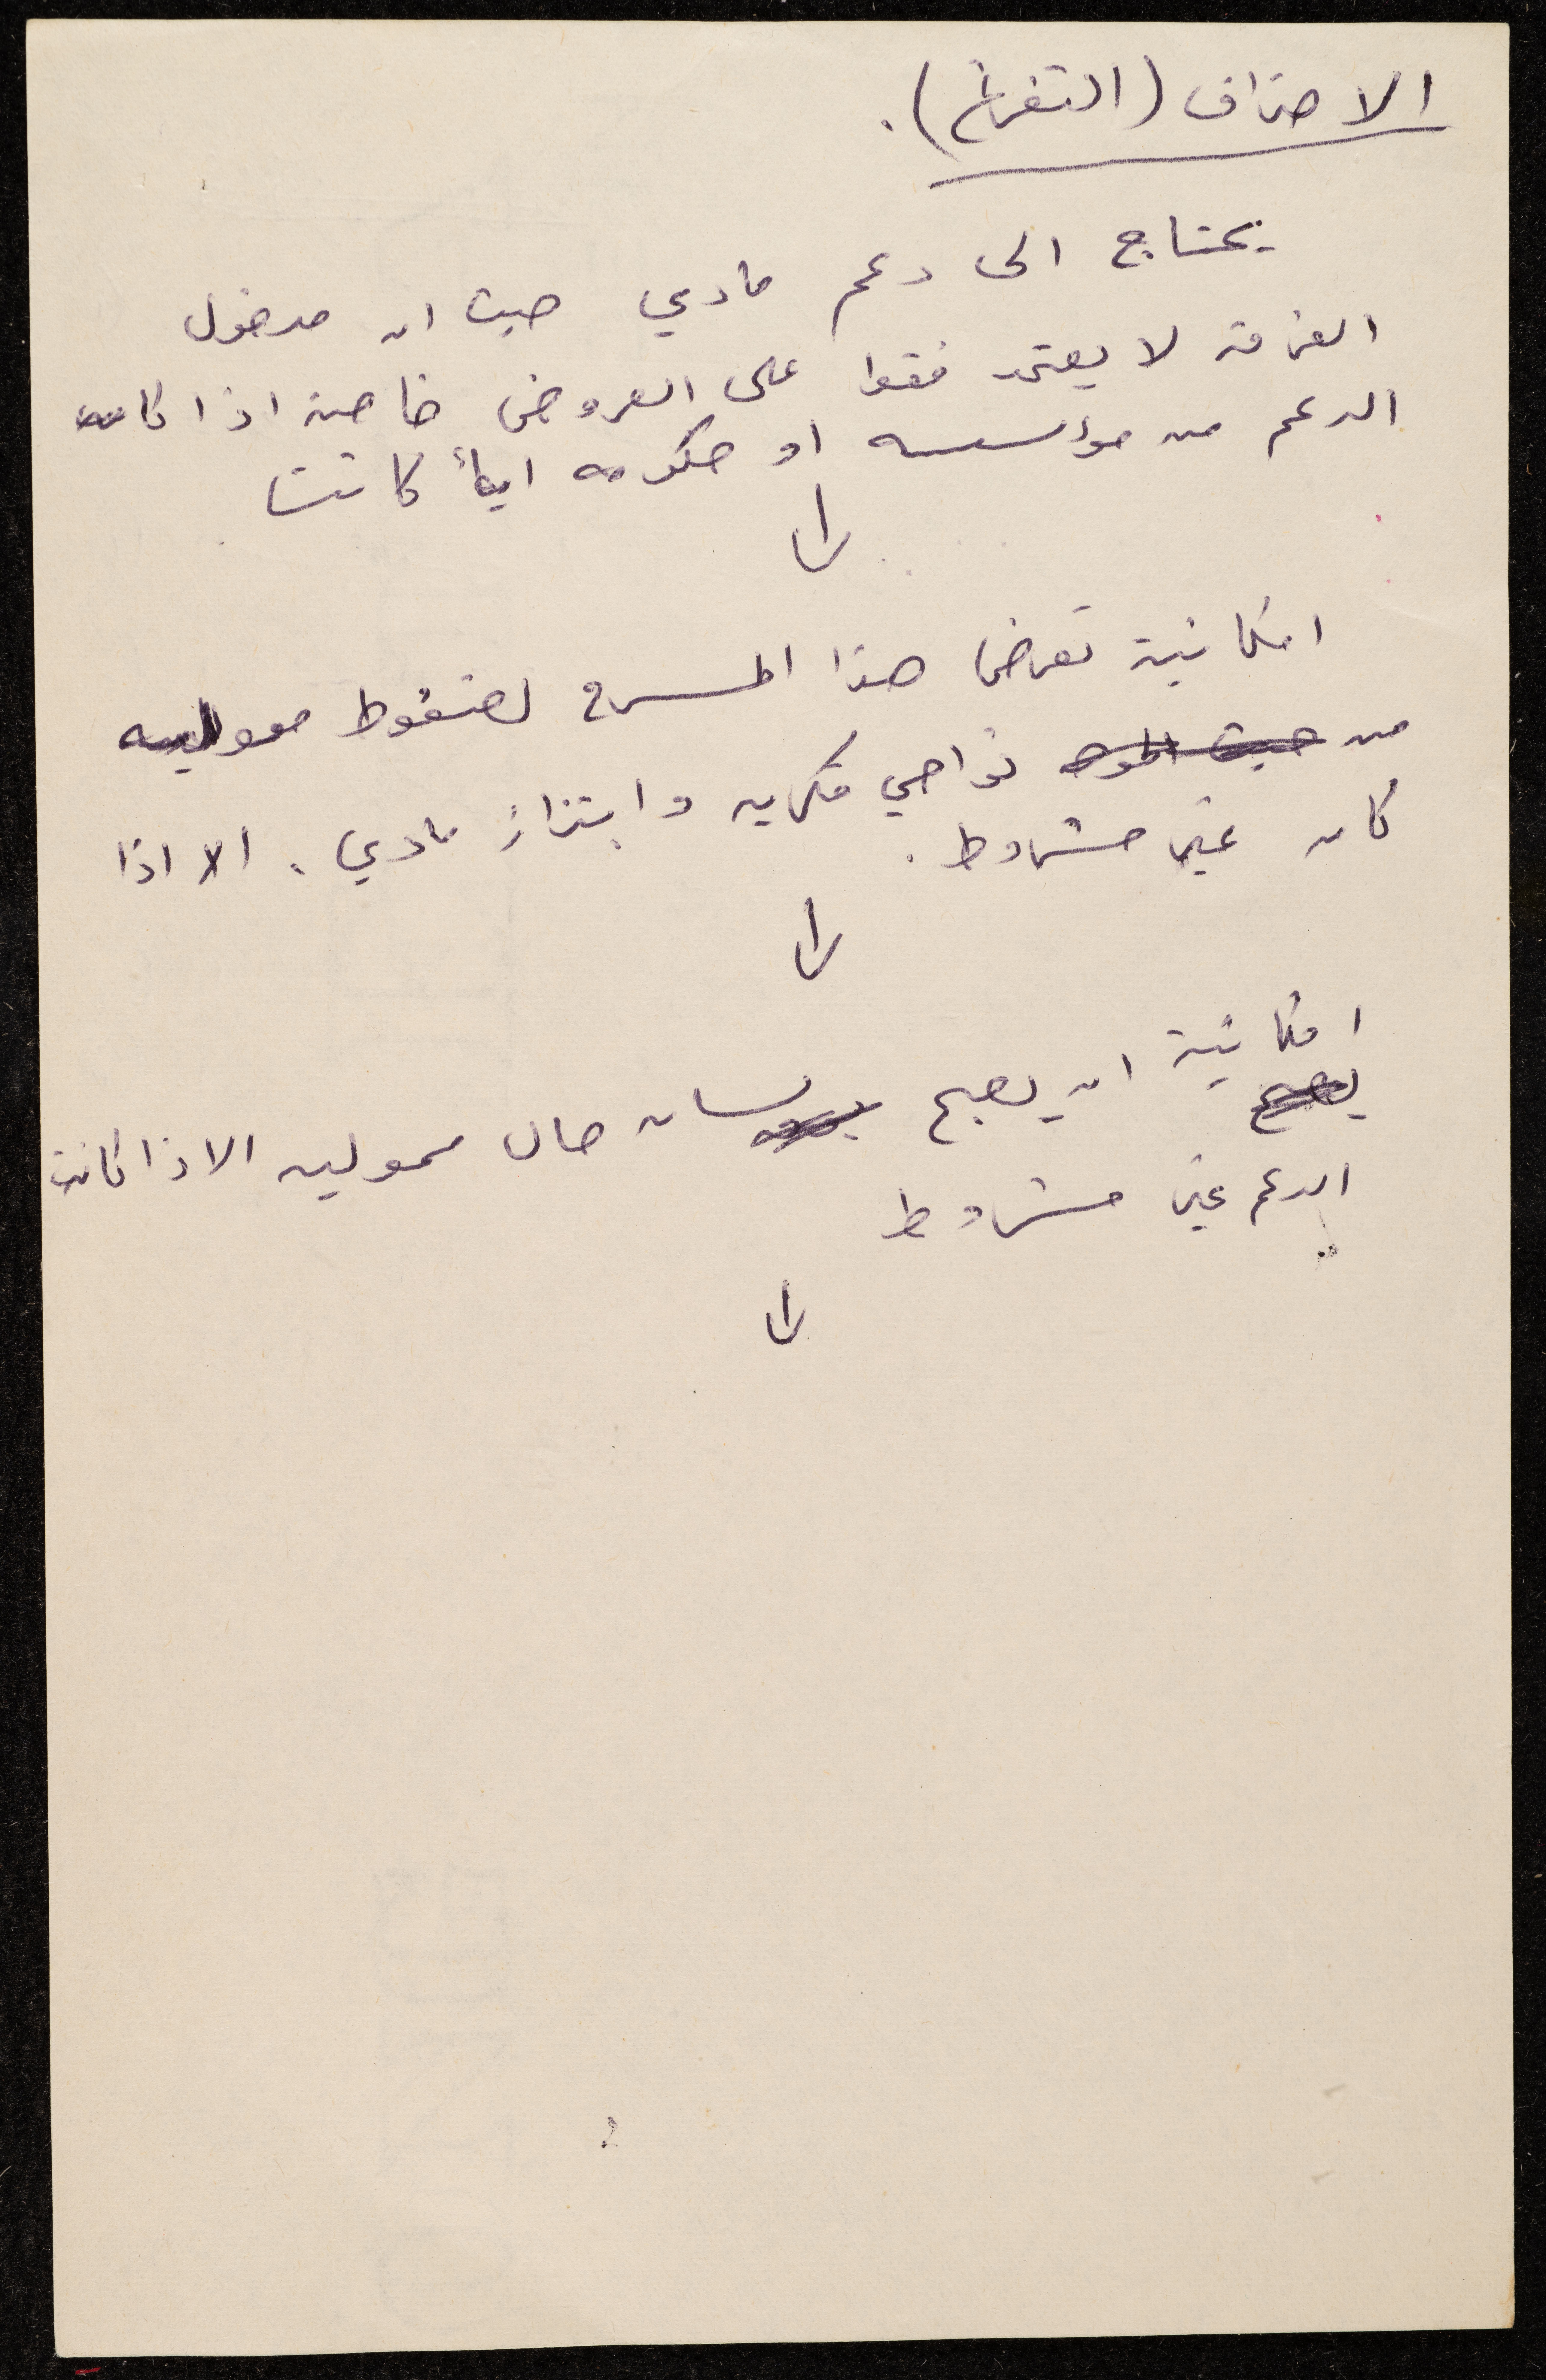 الاحتراف (التفرغ).
يحتاج الى دعم مادي حيث ان مدخول
الفرقة لا يعتمد فقط على العروض خاصة اذا كان
الدعم من مؤسسه او حكومه اياً كانت
↓
امكانية تعرض هذا المسرح لضغوط مموليه
من حيث نواحي فكريه وابتزاز مادي. الا اذا
كان غير مشروط.
↓
امكانية ان يصبح لسان حال مموليه الا اذا كانت
يصبح
الدعم غير مشروط
↓